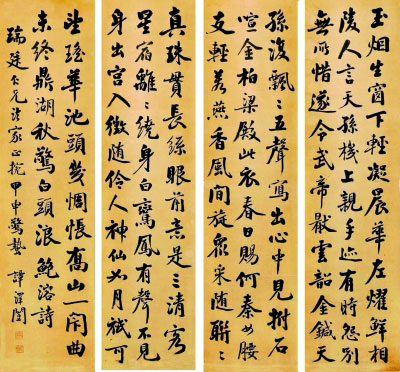 玉烟生窗下輕凝晨華左耀鮮相
陵人言天孫機上親手迹有時怨別
無所惜遂令武帝猒雲韶金鍼天
孫綴飄〻五聲寫出心中見拊石
喧金柏梁殿此衣春日賜何秦女腰
支輕若燕香風間旋眾采随聯〻
真珠貫長絲眼前意是三清客
星宿離〻繞身白鸞鳳有聲不見
身出宮入徵随伶人神仙如月祇可
望瑤華池頭幾惆悵喬山一閉曲
未終鼎湖秋驚白頭浪鮑溶詩
瑞廷仁兄法家正捥 甲申驚蟄 譚澤闓